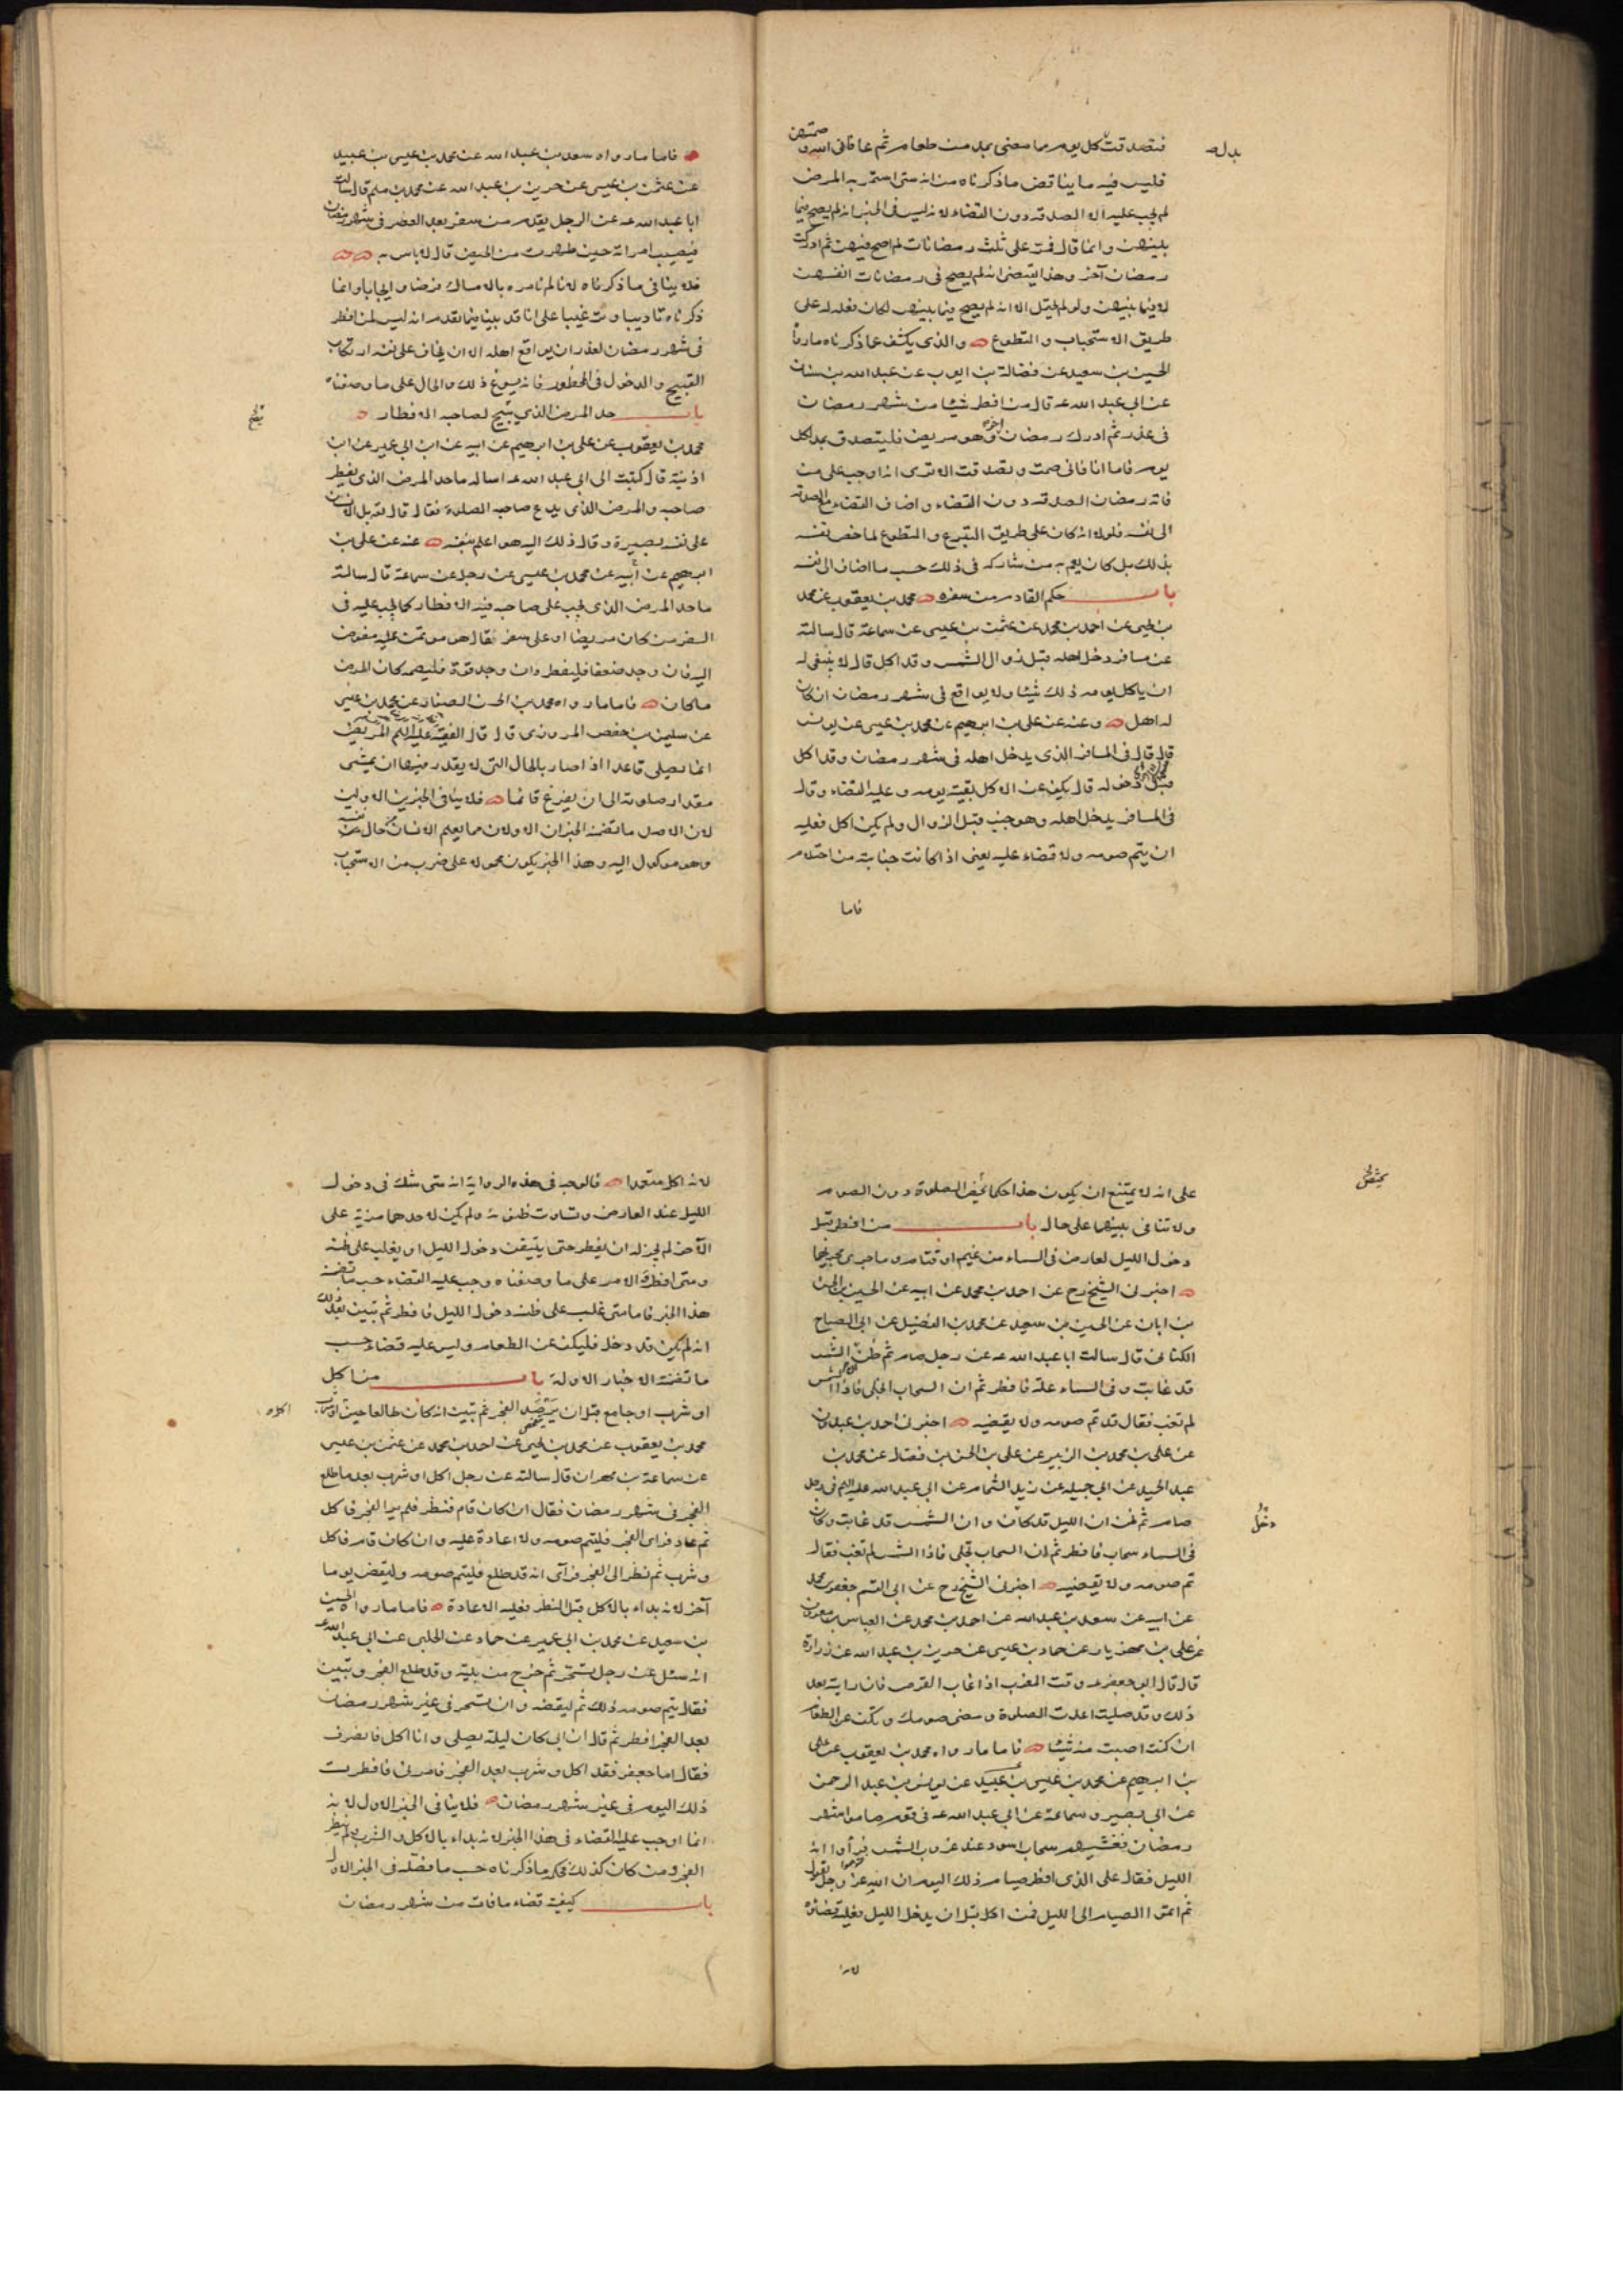 فتصدقت كل يوم مما مضى بمد من طعام ثم عافانى الله و صمتهن
بدل ص
فليس فيه ما يناقض ما ذكرناه من انه متى استمر به المرض
لم يجب عليه الا الصدقه دون القضاء لانه ليس فى الخبر انه لم يصح فيما
بينهن وانما قال فمرت على ثلث رمضانات لم اصح فيهن ثم ادركت
رمضان آخر وهذا يقتضى انه لم يصح فى رمضانات انفسهن
لا فيما بينهن ولو لم يحتمل الا انه لم يصح فيما بينهن لكان فعله له على
طريق الاستحباب والتطوع والذى يكشف عما ذكرناه ما رواه
الحسين بن سعيد عن فضالة بن ايوب عن عبد الله بن سنان
عن ابى عبد الله ع قال من افطر شيئا من شهر رمضان
فى عذر ثم ادرك رمضان آخر وهو مريض فليتصدق بمد لكل
يوم فاما انا فانى صمت وتصدقت الا ترى انه اوجب على من
فاته رمضان الصدقه دون القضاء واضاف القضاء مع الصدقة
الى نفسه فلولا انه كان على طريق التبرع والتطوع لما خص نفسه
بذلك بل كان يعم به من شاركه فى ذلك حسب ما اضاف الى نفسه
باب حكم القادم من سفره محمد بن يعقوب عن محمد
بن يحيى عن احمد بن محمد عن عثمن بن عيسى عن سماعة قال سالته
عن مسافر دخل اهله قبل زوال الشمس وقد اكل قال لا ينبغى له
ان ياكل يومه ذلك شيئا ولا يواقع فى شهر رمضان ان كان
له اهل وعنه عن على بن ابرهيم عن محمد بن عيسى عن يونس
قال قال فى المسافر الذى يدخل اهله فى شهر رمضان وقد اكل
قبل دخوله قال يكف عن الاكل بقية يومه وعليه القضاء وقال
فى المسافر يدخل اهله وهو جنب قبل الزوال ولم يكن اكل فعليه
ان يتم صومه ولا قضاء عليه يعنى اذا كانت جنابته من احتلام
فاما
فاما ما رواه سعد بن عبد الله عن محمد بن عيسى بن عبيد
عن عثمن بن عيسى عن حريز بن عبد الله عن محمد بن مسلم قال سالت
ابا عبد الله ع عن الرجل يقدم من سفر بعد العصر فى شهر رمضان
فيصيب امراته حين طهرت من الحيض قال لا باس به
فلا ينافى ما ذكرناه لانا لم نامره بالامساك فرضا وايجابا وانما
ذكرناه تاديبا وترغيبا على انا قد بينا فيما تقدم انه ليس لمن افطر
فى شهر رمضان لعذر ان يواقع اهله الا ان يخاف على نفسه ارتكاب
القبيح والدخول فى المحظور فانه يسوغ ذلك والحال على ما وصفناه
باب حد المرض الذي يبيح لصاحبه الافطار
محمد بن يعقوب عن على بن ابرهيم عن ابيه عن ابن ابى عمير عن ابن
اذينة قال كتبت الى ابى عبد الله ع اساله ما حد المرض الذى يفطر
صاحبه والمرض الذى يدع صاحبه الصلوة فقال قال بل الانسان
على نفسه بصيرة وقال ذلك اليه هو اعلم بنفسه عنه عن على بن
ابرهيم عن ابيه عن محمد بن عيسى عن رجل عن سماعة قال سالته
ما حد المرض الذى يجب على صاحبه فيه الافطار كما يجب عليه فى
السفر من كان مريضا او على سفر فقال هو مؤتمن عليه مفوض
اليه فان وجد ضعفا فليفطر وان وجد قوة فليصمه كان المرض
ما كان فاما ما رواه محمد بن الحسن الصفار عن محمد بن عيسى
عن سليمن بن حفص المروزى قال قال الفقيه عليه السلم المريض
انما يصلى قاعدا اذا صار بالحال التى لا يقدر فيها ان يمشى
مقدار صلوته الى ان يفرغ قائما فلا ينافى الخبرين الاولين
لان الاصل ما تضمنه الخبران الاولان مما يعلم الانسان من حال نفسه
وهو موكول اليه وهذا الخبر يكون محمولا على ضرب من الاستحباب
على انه لا يمتنع ان يكون هذا حكما يخص الصلوة دون الصوم
ولا تنافى بينهما على حال باب من افطر قبل
دخول الليل لعارض فى السماء من غيم او قتام وما جرى مجريهما
اخبرنى الشيخ رح عن احمد بن محمد عن ابيه عن الحسين بن الحسن
بن ابان عن الحسين بن سعيد عن محمد بن الفضيل عن ابى الصباح
الكنانى قال سالت ابا عبد الله ع عن رجل صام ثم ظن ان الشمس
قد غابت وفى السماء علة فافطر ثم ان السحاب انجلى فاذا الشمس
لم تغب فقال قد تم صومه ولا يقضيه اخبرنى احمد بن عبدون
عن على بن محمد بن الزبير عن على بن الحسن بن فضال عن محمد بن
عبد الحميد عن ابى جميله عن زيد الشحام عن ابى عبد الله عليه السلم فى رجل
صام ثم ظن ان الليل قد كان وان الشمس قد غابت وكان
دخل
فى السماء سحاب فافطر ثم ان السحاب تجلى فاذا الشمس لم تغب فقال
تم صومه ولا يقضيه اخبرنى الشيخ رح عن ابى القسم جعفر بن محمد
عن ابيه عن سعد بن عبد الله عن احمد بن محمد عن العباس بن معروف
عن على بن مهزيار عن حماد بن عيسى عن حريز بن عبد الله عن زرارة
قال قال ابو جعفر ع وقت المغرب اذا غاب القرص فان رايته بعد
ذلك وقد صليت اعدت الصلوة ومضى صومك وتكف عن الطعام
ان كنت اصبت منه شيئا فاما ما رواه محمد بن يعقوب عن على
بن ابرهيم عن محمد بن عيسى بن عبيد عن يونس بن عبد الرحمن
عن ابى بصير وسماعة عن ابى عبد الله ع فى قوم صاموا شهر
رمضان فغشيهم سحاب اسود عند غروب الشمس فرأوا انه
الليل فقال على الذى افطر صيام ذلك اليوم ان الله عز وجل يقول
ثم اتموا الصيام الى الليل فمن اكل قبل ان يدخل الليل فعليه قضاؤه
لانه
لانه اكل متعمدا فالوجه فى هذه الرواية انه متى شك فى دخول
الليل عند العارض وتساوت ظنونه ولم يكن لاحدهما مزية على
الآخر لم يجز له ان يفطر حتى يتيقن دخول الليل او يغلب على ظنه
ومتى افطر والامر على ما وصفناه وجب عليه القضاء حسب ما تضمنه
هذا الخبر فاما متى غلب على ظنه دخول الليل فافطر ثم تبين بعد ذلك
انه لم يكن قد دخل فليكف عن الطعام وليس عليه قضاء حسب
ما تضمنته الاخبار الاولة باب من اكل
او شرب او جامع قبل ان يرصد الفجر ثم تبين انه كان طالعا حين
محمد بن يعقوب عن محمد بن يحيى عن احمد بن محمد عن عثمن بن عيسى
عن سماعة بن مهران قال سالته عن رجل اكل او شرب بعد ما طلع
الفجر فى شهر رمضان فقال ان كان قام فنظر فلم ير الفجر فاكل
ثم عاد فراى الفجر فليتم صومه ولا اعادة عليه وان كان قام فاكل
وشرب ثم نظر الى الفجر فرآى انه قد طلع فليتم صومه وليقض يوما
آخر لانه بداء بالاكل قبل النظر فعليه الاعادة فاما ما رواه الحسين
بن سعيد عن محمد بن ابى عمير عن حماد عن الحلبى عن ابى عبد الله ع
انه سئل عن رجل تسحر ثم خرج من بيته وقد طلع الفجر وتبين
فقال يتم صومه ذلك ثم ليقضه وان تسحر فى غير شهر رمضان
بعد الفجر افطر ثم قال ان ابى كان ليلة يصلى وانا اكل فانصرف
فقال اما جعفر فقد اكل وشرب بعد الفجر فامرنى فافطرت
ذلك اليوم فى غير شهر رمضان فلا ينافى الخبر الاول لانه
انما اوجب عليه القضاء فى هذا الخبر لانه بداء بالاكل والشرب ولم ينظر
الفجر ومن كان كذلك فحكمه ما ذكرناه حسب ما فصله فى الخبر الاول
باب كيفية قضاء ما فات من شهر رمضان